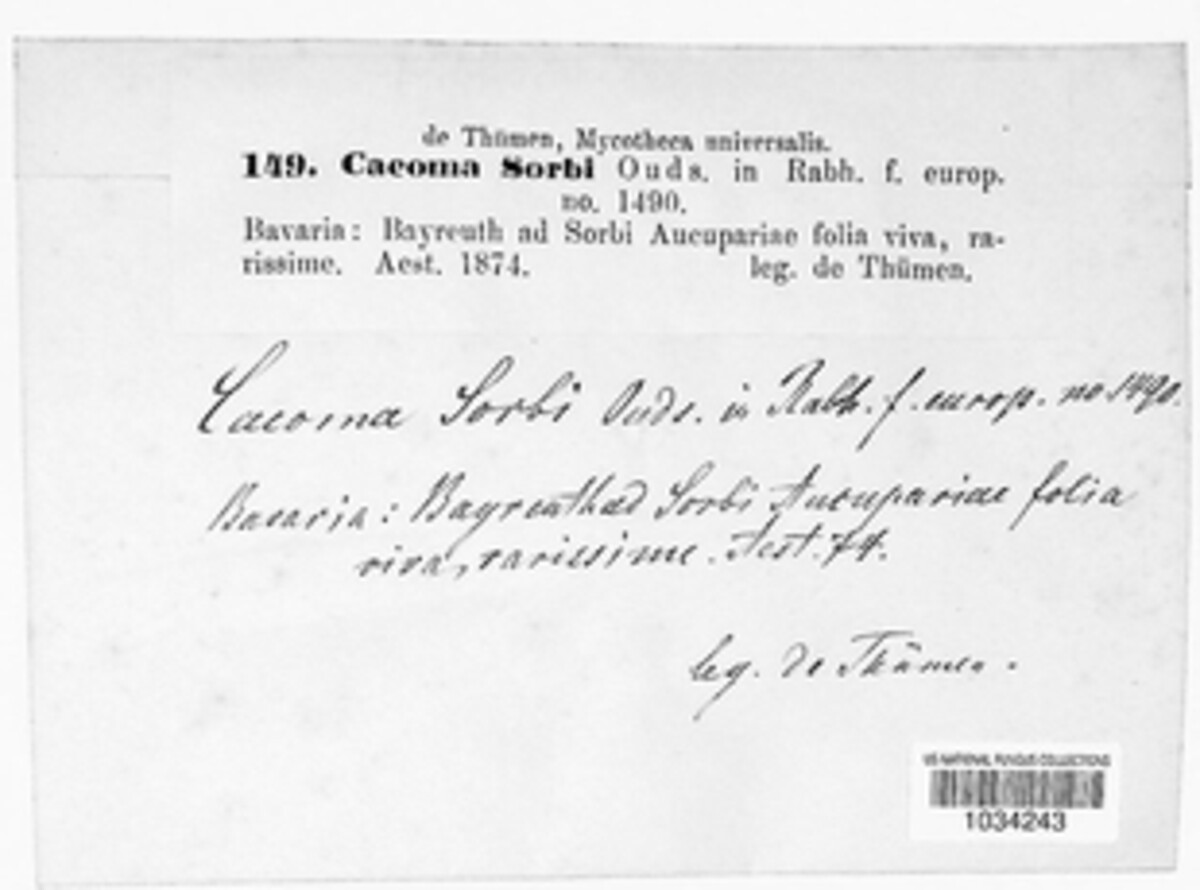 de Thümen, Mycotheca universalis.
149. Caeoma Sorbi Ouds. in Rabh. f. europ.
no. 1490.
Bavaria: Bayreuth ad Sorbi Aucupariae folia viva, ra-
rissime. Aest. 1874. leg. de Thümen.
Caeoma Sorbi Ouds. in Rabh. f. europ. no. 1490.
Bavaria: Bayreuth ad Sorbi Aucupariae folia
viva, rarissime. Aest. 74.
leg. de Thümen.
US NATIONAL FUNGUS COLLECTIONS
1034243